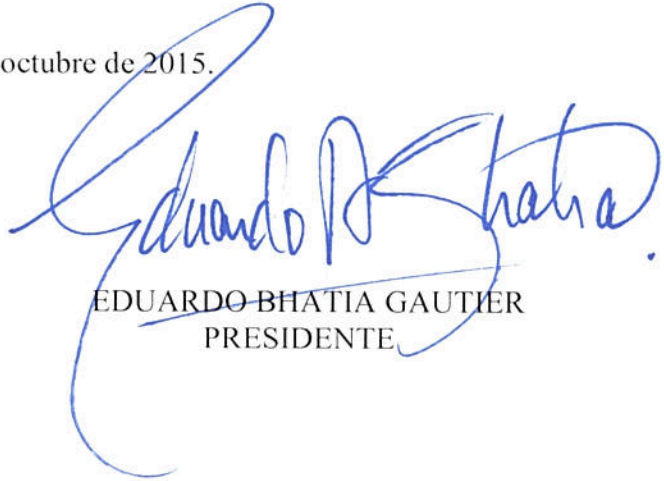 octubre de 2015.
Eduardo A Bhatia
EDUARDO BHATIA GAUTIER
PRESIDENTE